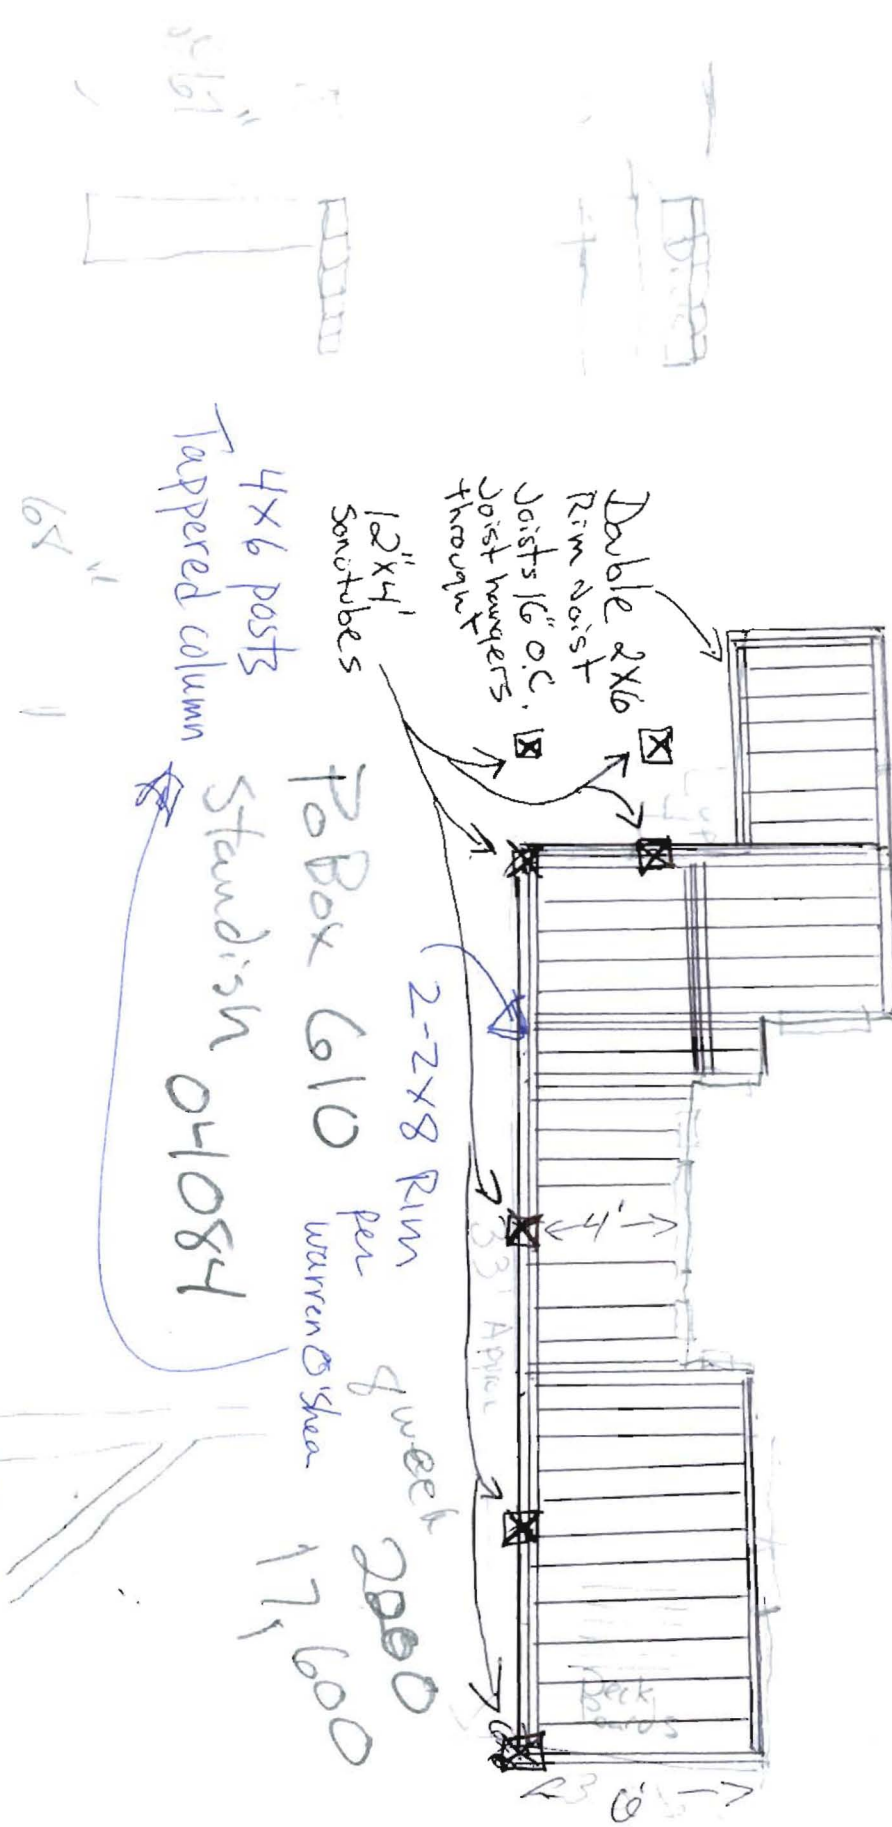 Double 2x6
Rim Joist
Joists 16" O.C.
Joist hangers
throughout
12"x4'
Sonotubes
4x6 posts
Tappered column
68"
PO Box 610
Standish 04084
2-2x8 Rim
per
Warren O'Shea
8 week
2000
17,600
4'
33'
Deck
Boards
6'